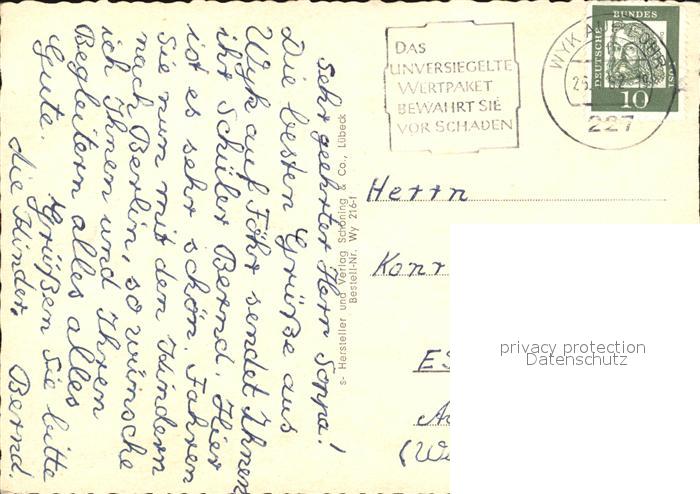 Sehr geehrter Herr Sonpa!
Die besten Grüße aus
Wyk auf Föhr sendet Ihnen
ihr Schüler Bernd. Hier
ist es sehr schön. Fahren
Sie nun mit den Kindern
nach Berlin, so wünsche
ich Ihnen und Ihren
Begleitern alles alles
Gute. Grüßen Sie bitte
die Kinder. Bernd
s- Hersteller und Verlag Schöning & Co., Lübeck
Bestell-Nr. Wy 216-f
DAS
UNVERSIEGELTE
WERTPAKET
BEWAHRT SIE
VOR SCHADEN
WYK AUF FÖHR
227
DEUTSCHE
BUNDES
POST
10
Herrn
Konr
privacy protection
Datenschutz